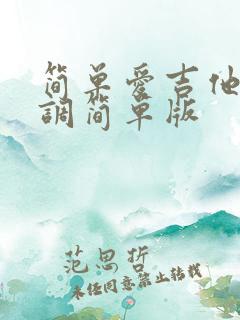 简单爱吉他
調简单版
范思哲
未经同意禁止转载